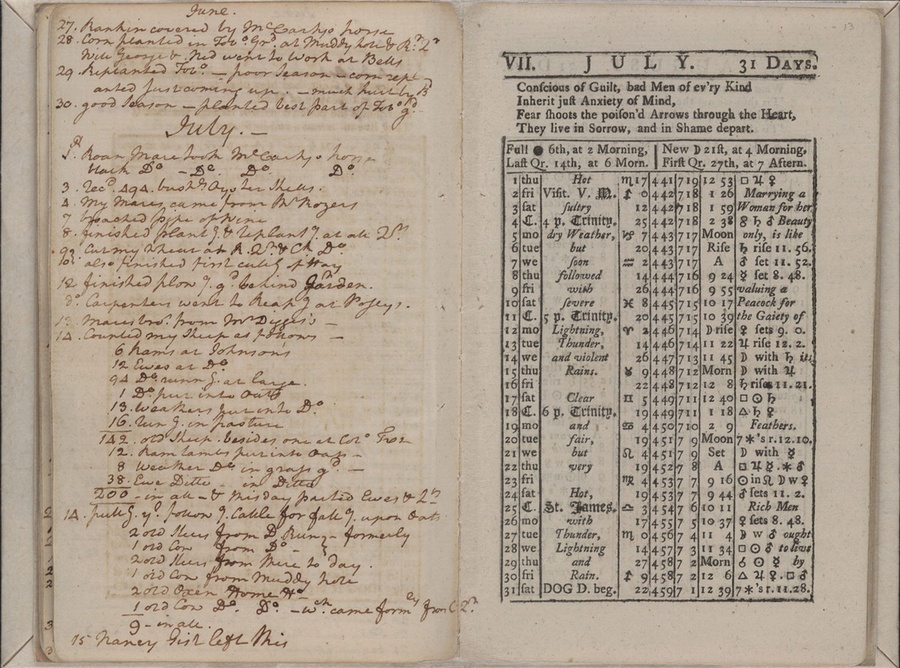 June.
27. Rankin covered by McCarty's horse
28. Corn planted in Tobo. Grd. at Muddy hole & R. Qr
Will George & Ned went to Work at Bells
29. Replanted Tobo. — poor Season — corn repl
anted just coming up. — much hurt by
30. good Season — planted best part of Tobo gd.
July. —
1st Roan Mare took McCartys horse
black Do — Do. Do. Do.
3. Recd. 494. bushls Oyster Shells.
4. My Mares came from Mr Rogers
7 broached pipe of Wine
8. finished plantg. & replantg. at all Qrs
9. Cut my Wheat at R. Qr. & Ck. Do
10. also finished first cuttg. of Hay
12 finished plowg. gd. behind Garden.
Do. Carpenters went to Reapg. at Poseys.
13. Mares bro. from Mr Digges's —
14. Counted my Sheep as follows —
6 Rams at Johnsons
12 Ewes at Do
94 Do. runng. at large.
1 Do. put into Oats
13. Weathers put into Do.
16. Rung. in pasture
142. old Sheep. besides one at Colo.
12. Ram lambs put into Oats —
8 Weather Do. in grass gd. —
38. Ewe Ditto — in Ditto
200 — in all — & this day parted Ewes &
14. putt g. ye. follow g. Cattle for fallg. upon Oats
2 old Steers from D. Run — formerly
1 old Cow from Do —
2 old Steers from there to day.
1 old Cow from Muddy hole
2 old Oxen Home Ho.
1 old Cow Do. Do. — wch. came formly from C. Qr.
9 — in all.
15 Nancy Gist left this
13
VII. JULY. 31 DAYS.
Conscious of Guilt, bad Men of ev'ry Kind
Inherit just Anxiety of Mind,
Fear shoots the poison'd Arrows through the Heart,
They live in Sorrow, and in Shame depart.
Full ● 6th, at 2 Morning, New ☽ 21st, at 4 Morning,
Last Qr. 14th, at 6 Morn. First Qr. 27th, at 7 Aftern.
1 thu Hot ♏ 17 4 41 7 19 12 53 □ ♃ ♀
2 fri Visit. V. M. ♐ 0 4 42 7 18 1 26 Marrying a
3 sat sultry 12 4 42 7 18 1 59 Woman for her
4 C. 4 p. Trinity. 25 4 42 7 18 2 38 ♂ ♄ ♂ Beauty
5 mo dry Weather, ♑ 7 4 43 7 17 Moon only, is like
6 tue but 20 4 43 7 17 Rise ♄ rise 11. 56.
7 we soon ♒ 2 4 43 7 17 A ♂ set 11. 52.
8 thu followed 14 4 44 7 16 9 24 ☿ set 8. 48.
9 fri with 26 4 44 7 16 9 55 valuing a
10 sat severe ♓ 8 4 45 7 15 10 17 Peacock for
11 C. 5 p. Trinity. 20 4 45 7 15 10 39 the Gaiety of
12 mo Lightning, ♈ 2 4 46 7 14 ☽ rise ♀ sets 9. 0.
13 tue Thunder, 14 4 46 7 14 11 22 ♃ rise 12. 2.
14 we and violent 26 4 47 7 13 11 45 ☽ with ♄ its
15 thu Rains. ♉ 9 4 48 7 12 Morn ☽ with ♃
16 fri 22 4 48 7 12 12 8 ♄ rise 11. 21.
17 sat Clear ♊ 5 4 49 7 11 12 40 □ ☉ ♄
18 C. 6 p. Trinity. 19 4 49 7 11 1 18 △ ♄ ♀
19 mo and ♋ 4 4 50 7 10 2 9 Feathers.
20 tue fair, 19 4 51 7 9 Moon 7 *'s r. 12. 10.
21 we but ♌ 4 4 51 7 9 Set ☽ with ☿
22 thu very 19 4 52 7 8 A □ ♃ ☿. ✶ ♂
23 fri ♍ 4 53 7 7 9 16 ☉ in ♌ ☽ w ♀
24 sat Hot, 19 4 53 7 7 9 44 ♂ sets 11. 2.
25 C. St. James. ♎ 3 4 54 7 6 10 11 Rich Men
26 mo with 17 4 55 7 5 10 37 ♀ sets 8. 48.
27 tue Thunder, ♏ 0 4 56 7 4 11 4 ☽ w ♂ ought
28 we Lightning 14 4 57 7 3 11 34 □ ☉ ♂ to love
29 thu and 27 4 58 7 2 Morn ☌ ☉ ☿ by
30 fri Rain. ♐ 9 4 58 7 2 12 6 △ ♃ ♀. □ ♂
31 sat DOG D. beg. 22 4 59 7 1 12 39 7 *'s r. 11. 28.